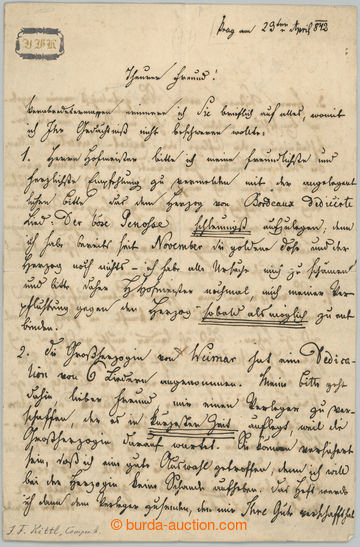 J F K
Prag am 23ten April 842
Theurer Freund!
Verabredetermaßen erinnere ich Sie brieflich auf alles, womit
ich Ihr Gedächtniß nicht beschweren wollte:
1. Herrn Hofmeister bitte ich meine freundlichste und
herzlichste Empfehlung zu vermelden mit der angelegent
lichen bitte das dem Herzog von Bordeaux dedicirte
Lied: Der böse schleunigst aufzulegen; denn
ich habe bereits seit November die goldene Dose und der
Herzog noch nichts – ich habe alle Ursache mich zu schämen
und bitte daher H. Hofmeister nochmal, mich meiner Ver
pflichtung gegen den Herzog sobald als möglich zu ent
binden.
2. Die Großherzogin von Weimar hat eine Dedica-
tion von 6 Liedern angenommen. Meine bitte geht
dahin lieber Freund mir einen Verleger zu ver-
schaffen, der es in kürzester Zeit auflegt, weil die
Großherzogin darauf wartet. Sie können versichert
sein, daß ich eine gute Auswahl getroffen, denn ich will
bei der Herzogin keine Schande aufheben. Das Heft werde
ich dann dem Verleger zusenden, den mir Ihre Güte verschafft hat
J. F. Kittl, Componist
burda-auction.com